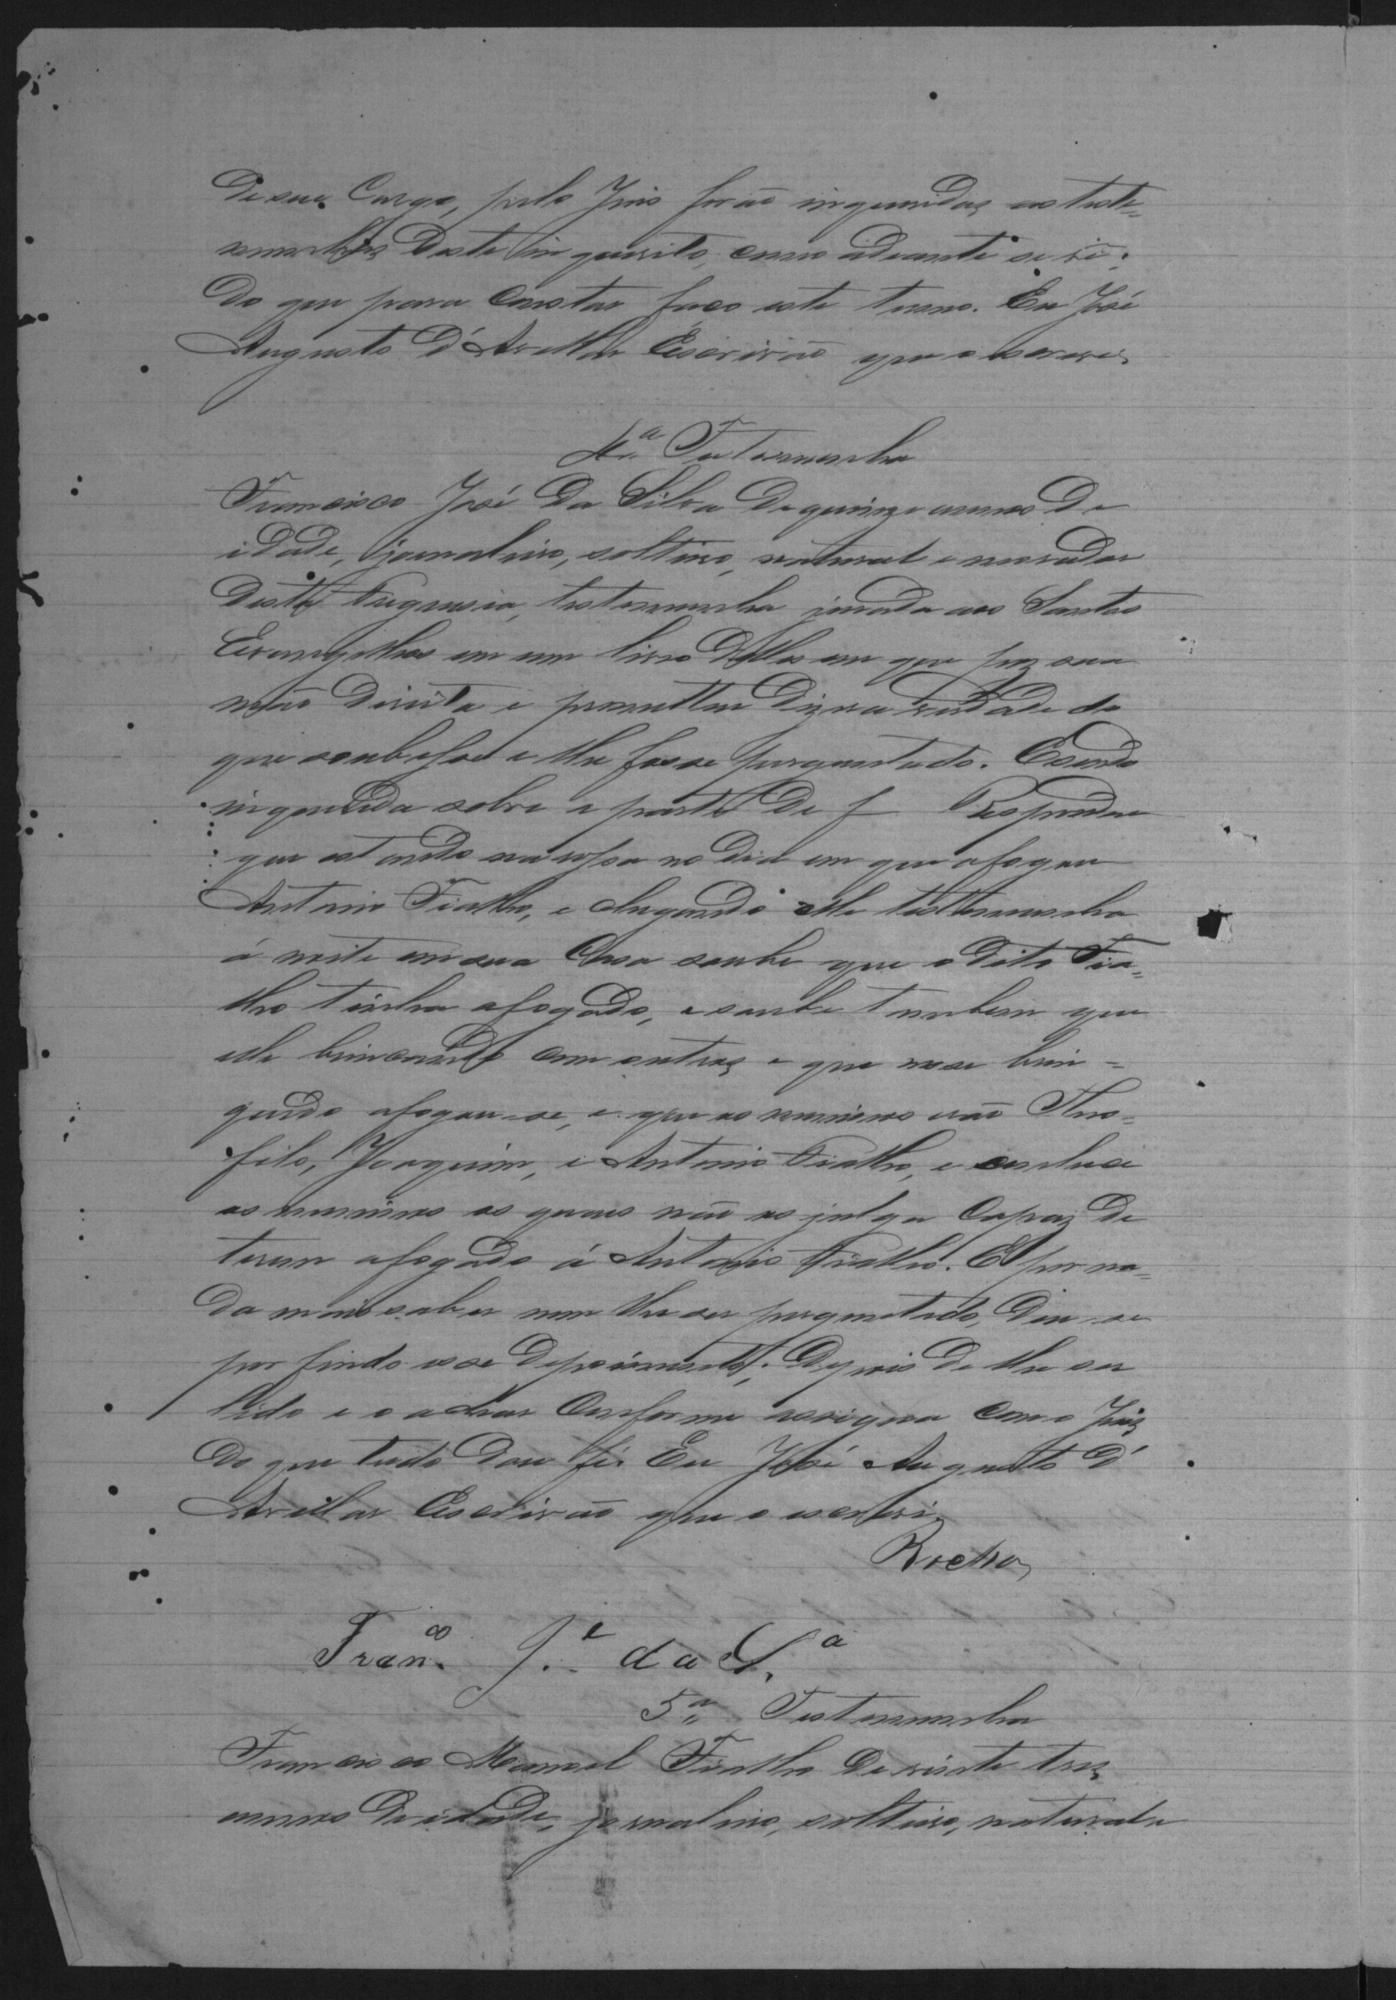 De seu Cargo, pelo Juis forão inqueridas as teste=
munhas Deste inquerito, como adeante se vê;
Do que para Constar faço este termo. Eu José
Augusto D'Avellar Escrivão que o escrevi.
4.ª Testemunha
Francisco José Da Silva De quinze annos De
idade, jornaleiro, solteiro, natural e morador
Desta Freguesia, testemunha jurada aos Santos
Evangelhos em um livro Delles em que poz sua
mão Direita e prometteu Dizer a verdade do
que soubesse e lhe fosse perguntado. E sendo
inquerida sobre a parte De f Respondeu
que estando na roça no Dia em que afogou
Antonio Fialho, e chegando elle testemunha
á noite em sua Casa soube que o Dito Fia=
lho tinha afogado, e soube tambem que
elle brincando com outros e que nesse brin=
quedo afogou-se, e que os meninos erão Theo=
filo, Joaquim, e Antonio Fialho, e conhece
os meninos os quaes não os julga Capaz De
terem afogado á Antonio Fialho. E por na=
da mais saber nem lhe ser perguntado, Deu-se
por findo esse Depoimento; Depois De lhe ser
lido e o achar Conforme assigna com o Juiz
Do que tudo Dou fé. Eu José Augusto D'
Avellar Escrivão que o escrevi.
Rocha
Fran.co J.e da S.a
5.ª Testemunha
Francisco Manoel Fialho De vinte tres
annos De idade, jornaleiro, solteiro, natural e